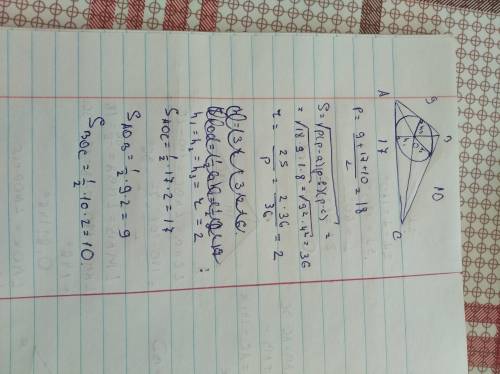 A 9 B 10 C
O
17
p = (9+17+10)/2 = 18
S = √(p(p-a)(p-b)(p-c)) =
= √(18·9·1·8) = √(9²·4²) = 36
r = 2S/p = 2·36/36 = 2
h₁ = h₂ = h₃ = r = 2
S_AOC = ½·17·2 = 17
S_AOB = ½·9·2 = 9
S_BOC = ½·10·2 = 10